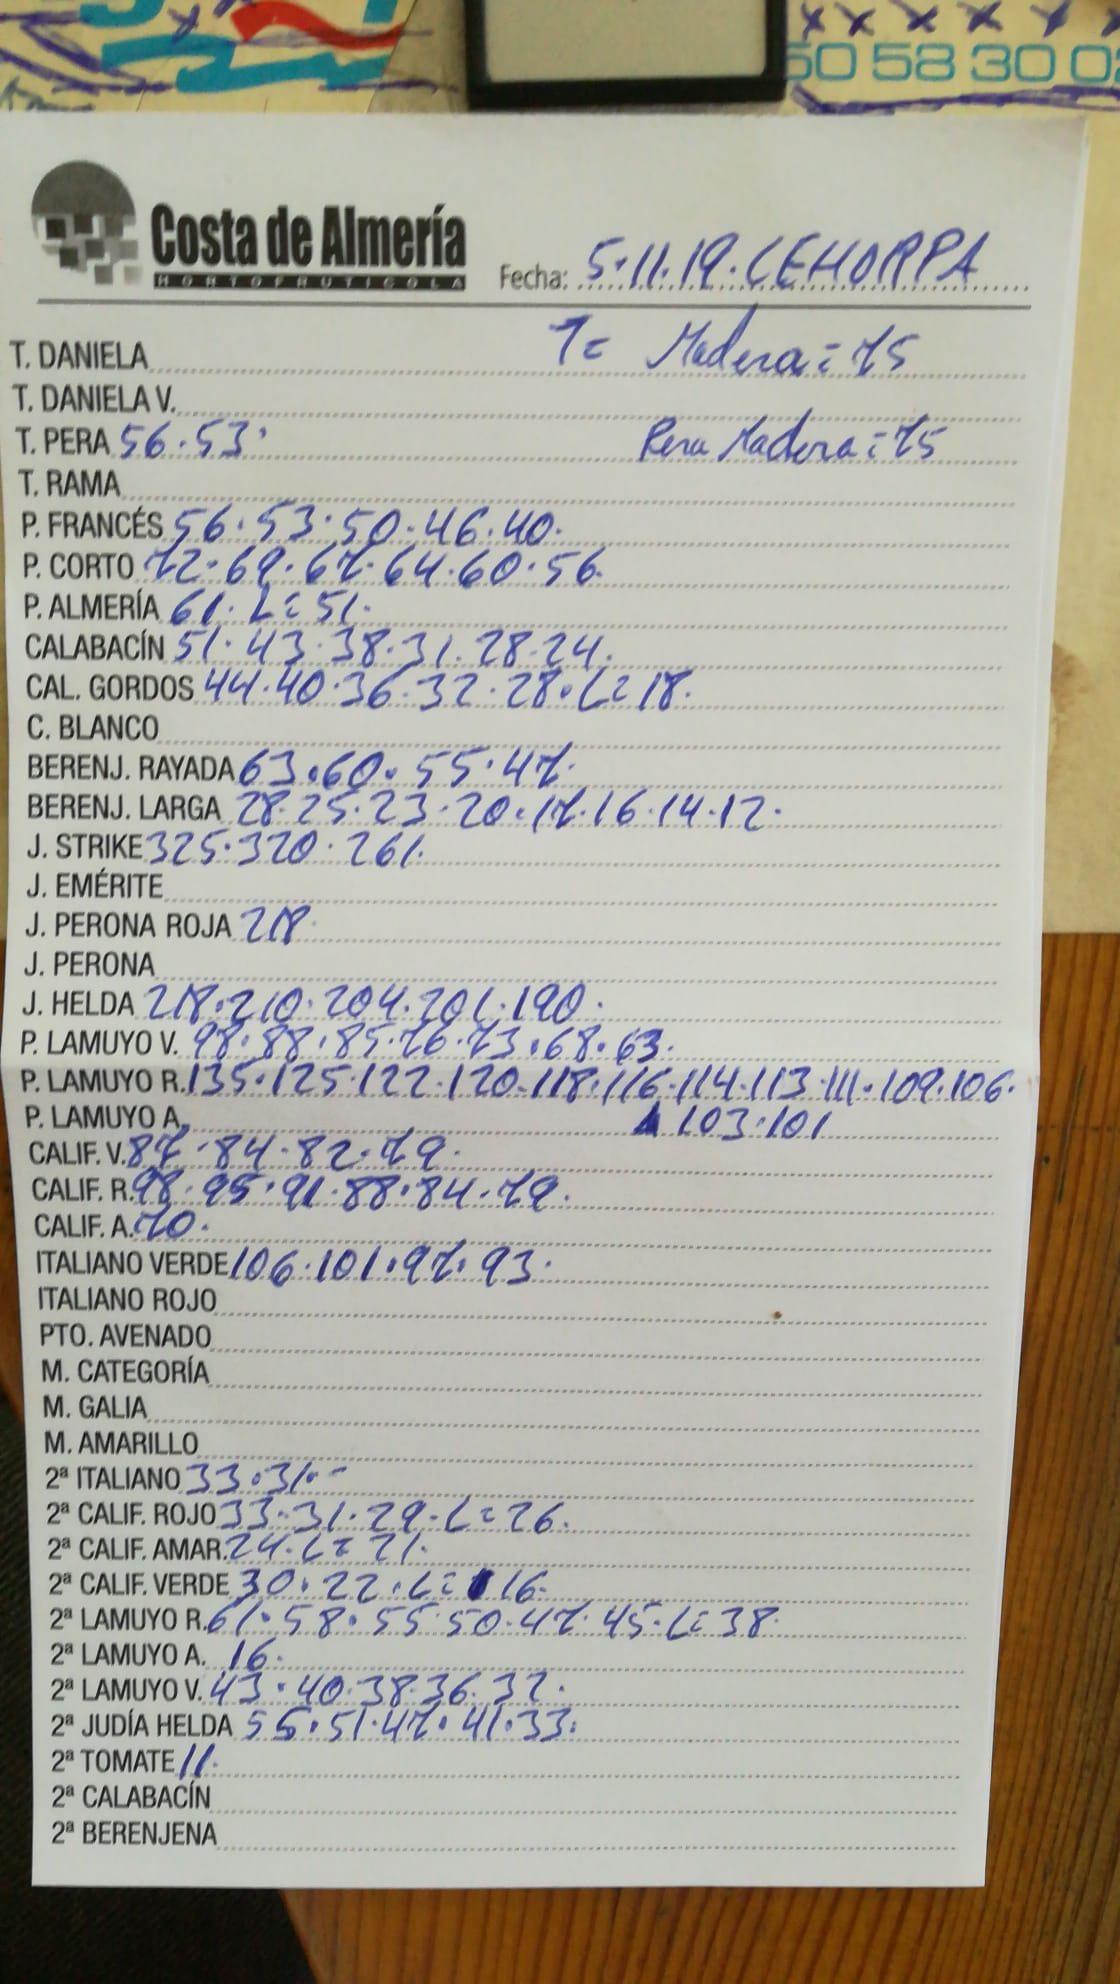 50 58 30 03
Costa de Almería
HORTOFRUTICOLA
Fecha: 5.11.19. CEHORPA
T. DANIELA T= Madera = 75
T. DANIELA V.
T. PERA 56.53. Pera Madera = 75
T. RAMA
P. FRANCÉS 56.53.50.46.40.
P. CORTO 72.69.67.64.60.56.
P. ALMERÍA 61. L=51.
CALABACÍN 51.43.38.31.28.24.
CAL. GORDOS 44.40.36.32.28. L=18.
C. BLANCO
BERENJ. RAYADA 63.60.55.47.
BERENJ. LARGA 28.25.23.20.17.16.14.12.
J. STRIKE 325.320.261.
J. EMÉRITE
J. PERONA ROJA 218.
J. PERONA
J. HELDA 218.210.204.201.190.
P. LAMUYO V. 98.88.85.76.73.68.63.
P. LAMUYO R. 135.125.122.120.118.116.114.113.111.109.106.
P. LAMUYO A. 103.101
CALIF. V. 87.84.82.79.
CALIF. R. 98.95.91.88.84.79.
CALIF. A. 70.
ITALIANO VERDE 106.101.97.93.
ITALIANO ROJO
PTO. AVENADO
M. CATEGORÍA
M. GALIA
M. AMARILLO
2ª ITALIANO 33.31.-
2ª CALIF. ROJO 33.31.29. L=26.
2ª CALIF. AMAR. 24. L=21.
2ª CALIF. VERDE 30.22. L=16.
2ª LAMUYO R. 61.58.55.50.47.45. L=38.
2ª LAMUYO A. 16.
2ª LAMUYO V. 43.40.38.36.32.
2ª JUDÍA HELDA 55.51.47.41.33.
2ª TOMATE 11.
2ª CALABACÍN
2ª BERENJENA